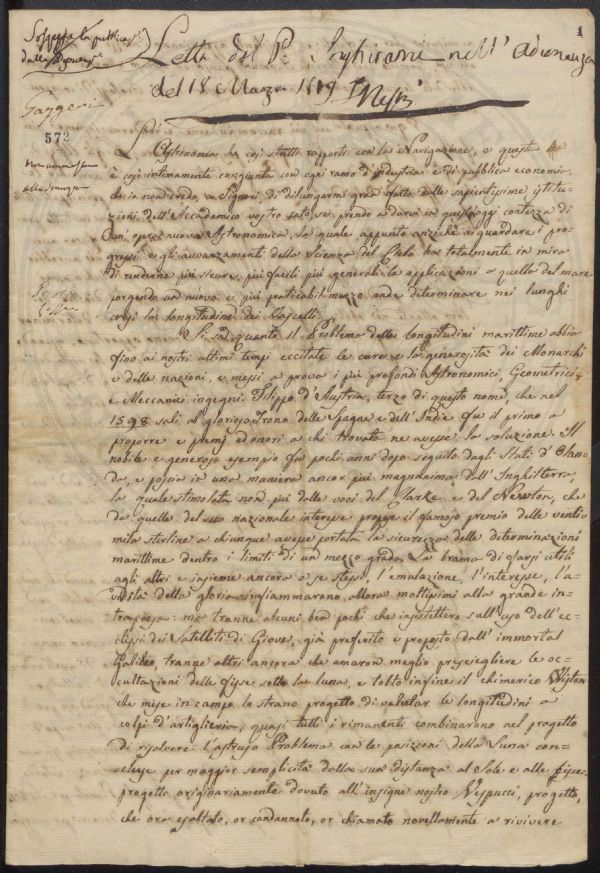 1
Sospesa la pubblicaz.e
Lett.a del P.e Inghirami nell'Adunanza
del 18 Marzo 1819
Gazzeri
573
L'Astronomia ha così stretti rapporti con la Navigazione, e questa
è così intimamente congiunta con ogni ramo d'industria e di pubblica economia,
che io non credo, o Signori, di dilungarmi gran fatto dalle sapientissime istitu-
zioni dell'Accademico vostro se prendo a darvi in quest'oggi contezza di
un' opra nuova Astronomica, la quale appunto anziché risguardare i pro-
gressi e gli avvanzamenti della Scienza del Cielo ha totalmente in mira
di renderne più sicure, più facili più generali le applicazioni a quella del mare
porgendo un nuovo e più praticabil mezzo onde determinare nei lunghi
corsi la longitudine dei Vascelli.
Si sa quanto il Problema delle longitudini marittime abbia
fino ai nostri ultimi tempi eccitate le cure e la generosità dei Monarchi
e delle nazioni, e messi a prova i più profondi Astronomici, Geometrici,
e Meccanici ingegni. Filippo d'Austria, terzo di questo nome, che nel
1598 salì al glorioso Trono delle Spagne e dell'Indie fu il primo a
proporre e premj ed onori a chi trovata ne avesse la soluzione. Il
nobile e generoso esempio fu pochi anni dopo seguito dagli Stati d'Olan-
da, e poscia in una maniera ancor più magnanima dall'Inghilterra,
la quale stimolata non più dalle voci del Clarke e del Newton, che
da quelle del suo nazionale interesse propose il famoso premio delle venti
mila sterline a chiunque avesse portata la sicurezza delle determinazioni
marittime dentro i limiti di un mezzo grado. La brama di farsi utili
agli altri e insieme ancora a se stessi, l'emulazione, l'interesse, l'a-
vidità della gloria infiammarono allora moltissimi alla grande in-
trapresa: ma tranne alcuni ben pochi che insistettero sull'uso dell'ec-
clissi dei Satelliti di Giove, già preferito e proposto dall'immortal
Galileo, tranne altri ancora che amaron meglio prescegliere le oc-
cultazioni delle fisse sotto la luna, e tolto infine il chimerico Wiston
che mise in campo lo strano progetto di valutar le longitudini a
colpi d'artiglieria, quasi tutti i rimanenti combinarono nel progetto
di risolvere l'astruso Problema con le posizioni della Luna con-
cluse per maggior semplicità dalla sua distanza al Sole e alle fisse;
progetto originariamente dovuto all'insigne nostro Vespucci, progetto,
che ora esaltato, or condannato, or chiamato novellamente a rivivere